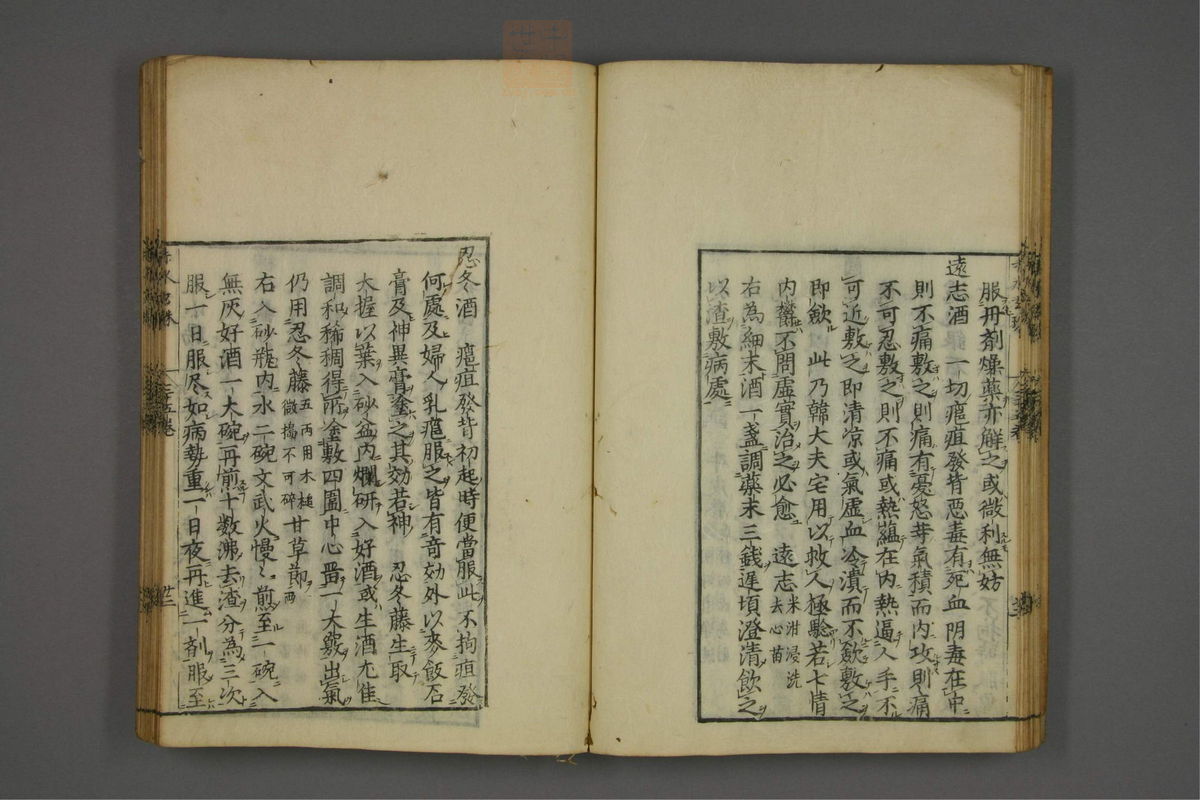 服丹剤燥藥亦解之或微利無妨
遠志酒 一切癰疽發背惡毒有死血阴毒在中
則不痛敷之則痛有憂怒等氣積而内攻則痛
不可忍敷之則不痛或熱蘊在内熱逼人手不
可近敷之即清凉或氣虛血冷潰而不斂敷之
即斂 此乃韓大夫宅用以救人極驗若七情
内欝不問虛實治之必愈 遠志米泔浸洗去心苗
右為細末酒一盞調藥末三錢遲頃澄清飲之
以渣敷病處
忍冬酒 癰疽發背初起時便當服此不拘疽發
何處及婦人乳癰服之皆有竒効外以麥飯石
膏及神異膏塗之其効若神 忍冬藤生取
大握以葉入砂盆内爛研入好酒或生酒尤佳
調和稀稠得所塗敷四圍中心畱一大竅出氣
仍用忍冬藤五两用木槌微搗不可碎甘草節一两
右入砂瓶内水二碗文武火慢〻煎至一碗入
無灰好酒一大碗再煎十数沸去渣分為三次
服一日服尽如病勢重一日夜再進一剤服至